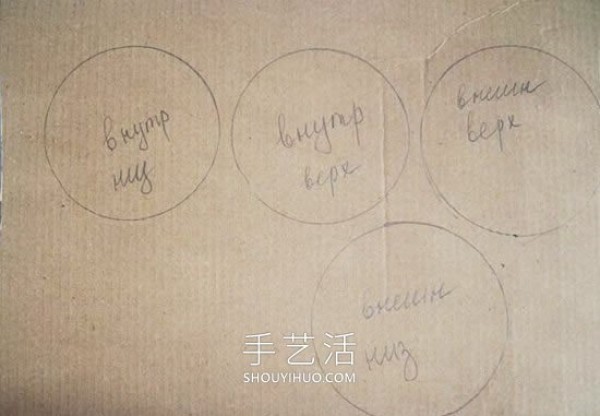 внутр
низ
внутр
верх
внешн
верх
внешн
низ
手艺活
SHOUYIHUO.COM